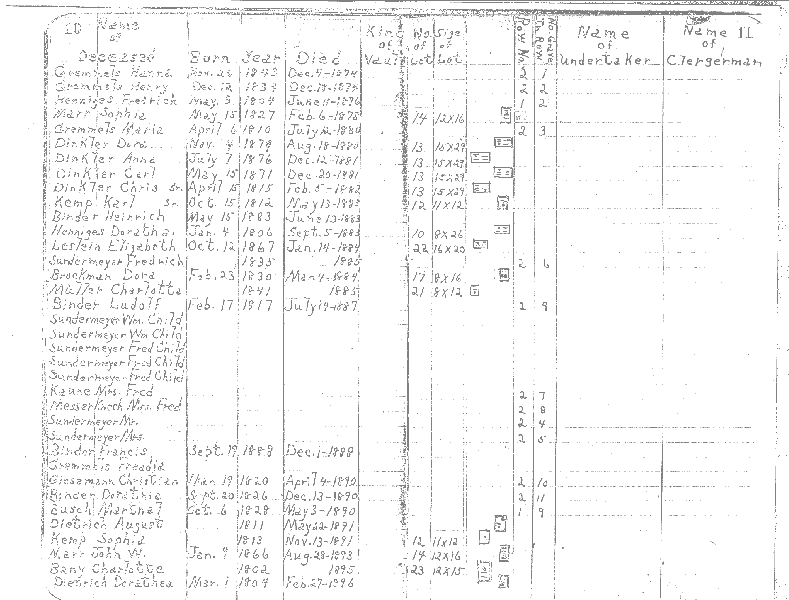 10 Name of Deceased Born Year Died Kind of Vault No. of Lot Size of Lot Row No. No. Grave In Row Name of Undertaker Name 11 of Clergerman
Gremmels Hanna Nov. 26 1843 Dec. 4-1874 2 1
Gremmels Henry Dec. 12 1834 2 2
Henniges Fredrich May. 3 1804 June 11-1876 1 2
Marr Sophia May 15 1827 Feb. 6-1875 14 12x16
Gremmels Maria April 6 1810 July 12-1880 2 3
Dinkler Dora Nov. 4 1879 Aug. 18-1880 13 15x29
Dinkler Anna July 7 1876 Dec. 12-1881 13 15x29
Dinkler Carl May 15 1871 Dec. 20-1881 13 15x29
Dinkler Chris Sr. April 15 1815 Feb. 5-1882 13 15x29
Kemp Karl Sr. Oct. 15 1812 Nov 13-1883 12 11x12
Binder Heinrich May 15 1883 June 13-1883
Henniges Dorathea Jan. 4 1806 Sept. 5-1883 10 8x26
Leslein Elizabeth Oct. 12 1867 Jan. 14-1884 22 16x20
Sundermeyer Fredrich 1835 1885 2 6
Brockman Dora Feb. 23 1830 Mar 4-1884 17 8x16
Müller Charlotta 1841 1885 21 8x12
Binder Ludolf Feb. 17 1917 July 19-1887 2 9
Sundermeyer Wm. Child
Sundermeyer Wm Child
Sundermeyer Fred Child
Sundermeyer Fred Child
Sundermeyer Fred Child
Kaune Mrs. Fred 2 7
Messerknech Mrs. Fred 2 8
Sundermeyer Mr. 2 4
Sundermeyer Mrs. 2 5
Binder Francis Sept. 19 1888 Dec. 1-1888
Gremmels
Giesemann Christian Mar. 19 1820 April 4-1890 2 10
Binder Dorathia Sept. 20 1826 Dec. 13-1890 2 11
Busch Martha Oct. 6 1828 May 3-1890 1 9
Dietrich August 1811 May 22-1891
Kemp Sophia 1813 Nov. 13-1891 12 11x12
Marr John W. Jan. 9 1866 Aug. 28-1893 14 12x16
Bany Charlotte 1802 1895 23 12x15
Dietrich Dorathea Mar. 1 1804 Feb. 27-1896